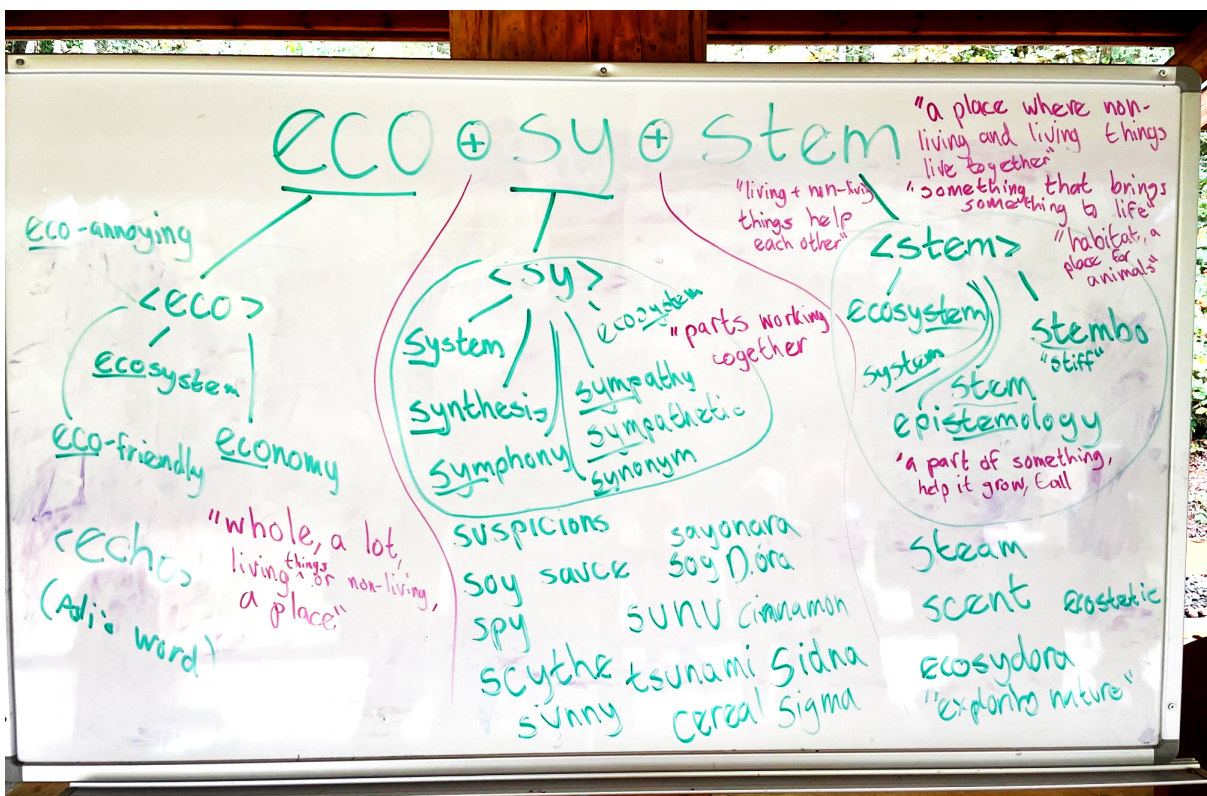 eco + sy + stem
"a place where non-
living and living things
live together"
"something that brings
something to life"
"habitat, a
place for
animals"
"living + non-living
things help
each other"
eco-annoying
<eco>
ecosystem
eco-friendly
economy
<echo>
"whole, a lot,
living things or non-living,
a place"
<sy>
system
synthesis
symphony
ecosystem
sympathy
sympathetic
synonym
"parts working
together
suspicions
soy sauce
spy
scythe
sunny
sayonara
soy D.óra
sunu cinnamon
tsunami Sidna
cereal Sigma
<stem>
ecosystem
system
stembo
"stiff"
stem
epistemology
"a part of something,
help it grow, tall
steam
scent
ecostetic
ecosydora
"exploring nature"